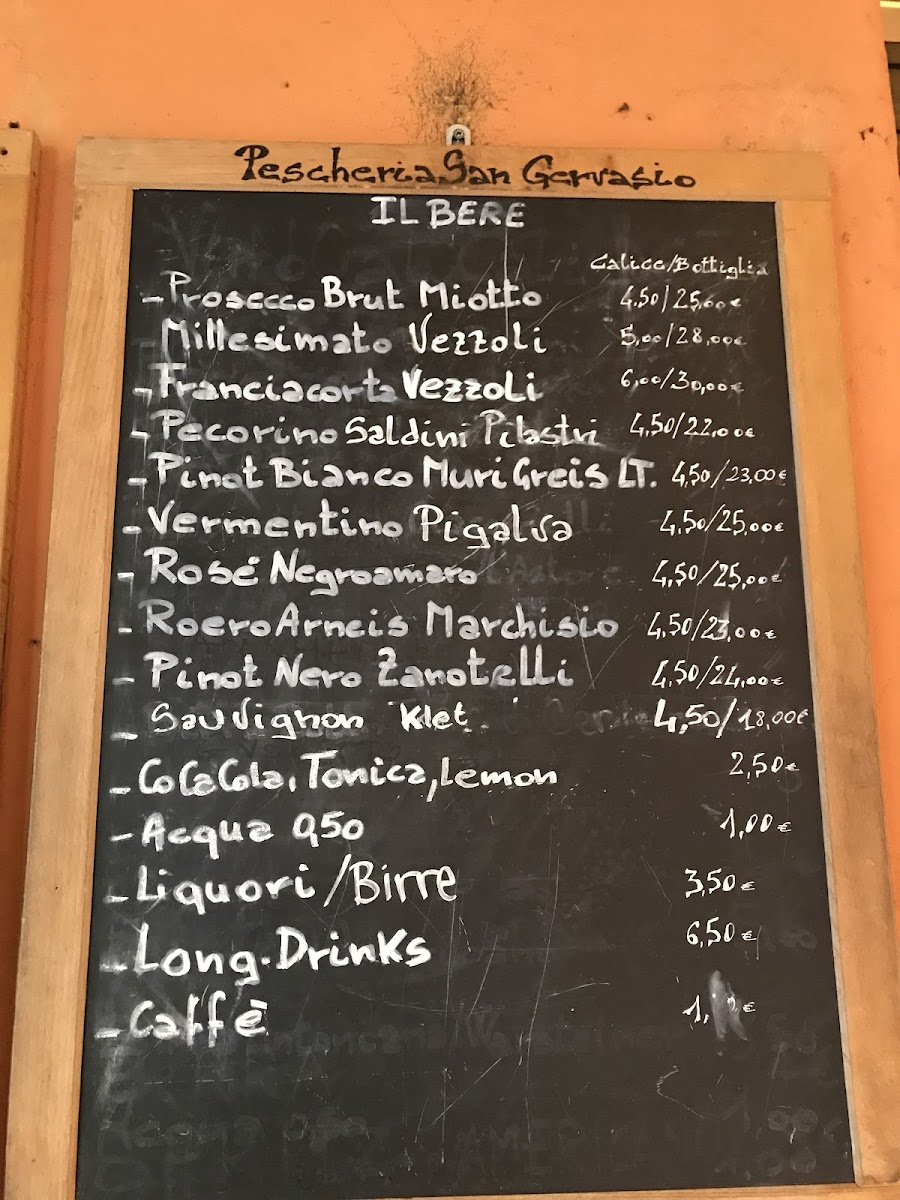 Pescheria San Gervasio
IL BERE
Calice/Bottiglia
- Prosecco Brut Miotto 4.50/25,00€
Millesimato Vezzoli 5,00/28,00€
- Franciacorta Vezzoli 6,00/30,00€
- Pecorino Saldini Pilastri 4,50/22,00€
- Pinot Bianco Muri Greis LT. 4,50/23,00€
- Vermentino 4,50/25,00€
- Rosé Negroamaro 4,50/25,00€
- Roero Arneis Marchisio 4,50/23,00€
- Pinot Nero Zanotelli 4,50/24,00€
- Sauvignon Klet 4,50/18,00€
- CoCaCola, Tonica, Lemon 2,50€
- Acqua 0,50 1,00€
- Liquori/Birre 3,50€
- Long-Drinks 6,50€
- Caffè